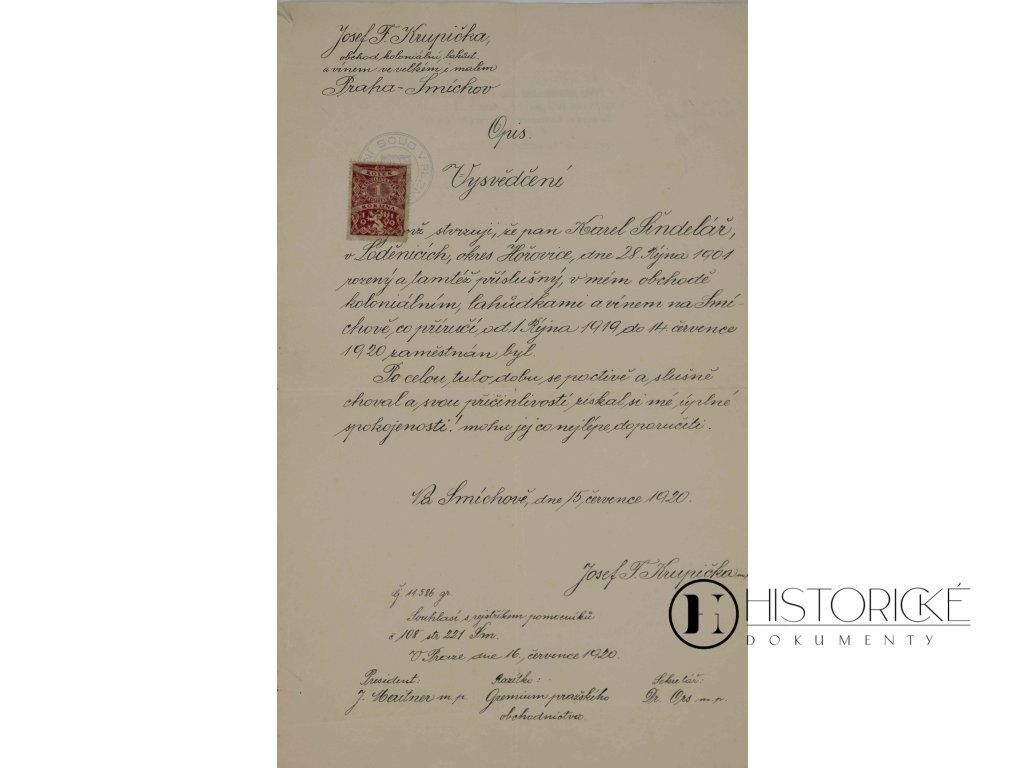 Josef F. Krupička,
obchod koloniální, lahůd.
a vínem ve velkém i malém
Praha-Smíchov
Opis.
Vysvědčení
KOLEK
1
KORUNA
1919
stvrzuji, že pan Karel Šindelář,
v Loděnicích, okres Hořovice, dne 28. Října 1901
rozený a tamtéž příslušný, v mém obchodě
koloniálním, lahůdkami a vínem na Smí-
chově, co příručí od 1. Října 1919 do 14. července
1920 zaměstnán byl.
Po celou tuto dobu se poctivě a slušně
choval a svou přičinlivostí získal si mé úplné
spokojenosti! mohu jej co nejlépe doporučiti.
Na Smíchově, dne 15. července 1920.
Josef F. Krupička m.p.
Čj. 11.586 gr.
Souhlasí s rejstříkem pomocníků
č 108 str 221 Sm.
V Praze dne 16. července 1920.
President: Razítko: Sekretář:
J. Maitner m.p. Gremium pražského Dr. Ors m.p.
obchodnictva.
HISTORICKÉ
DOKUMENTY